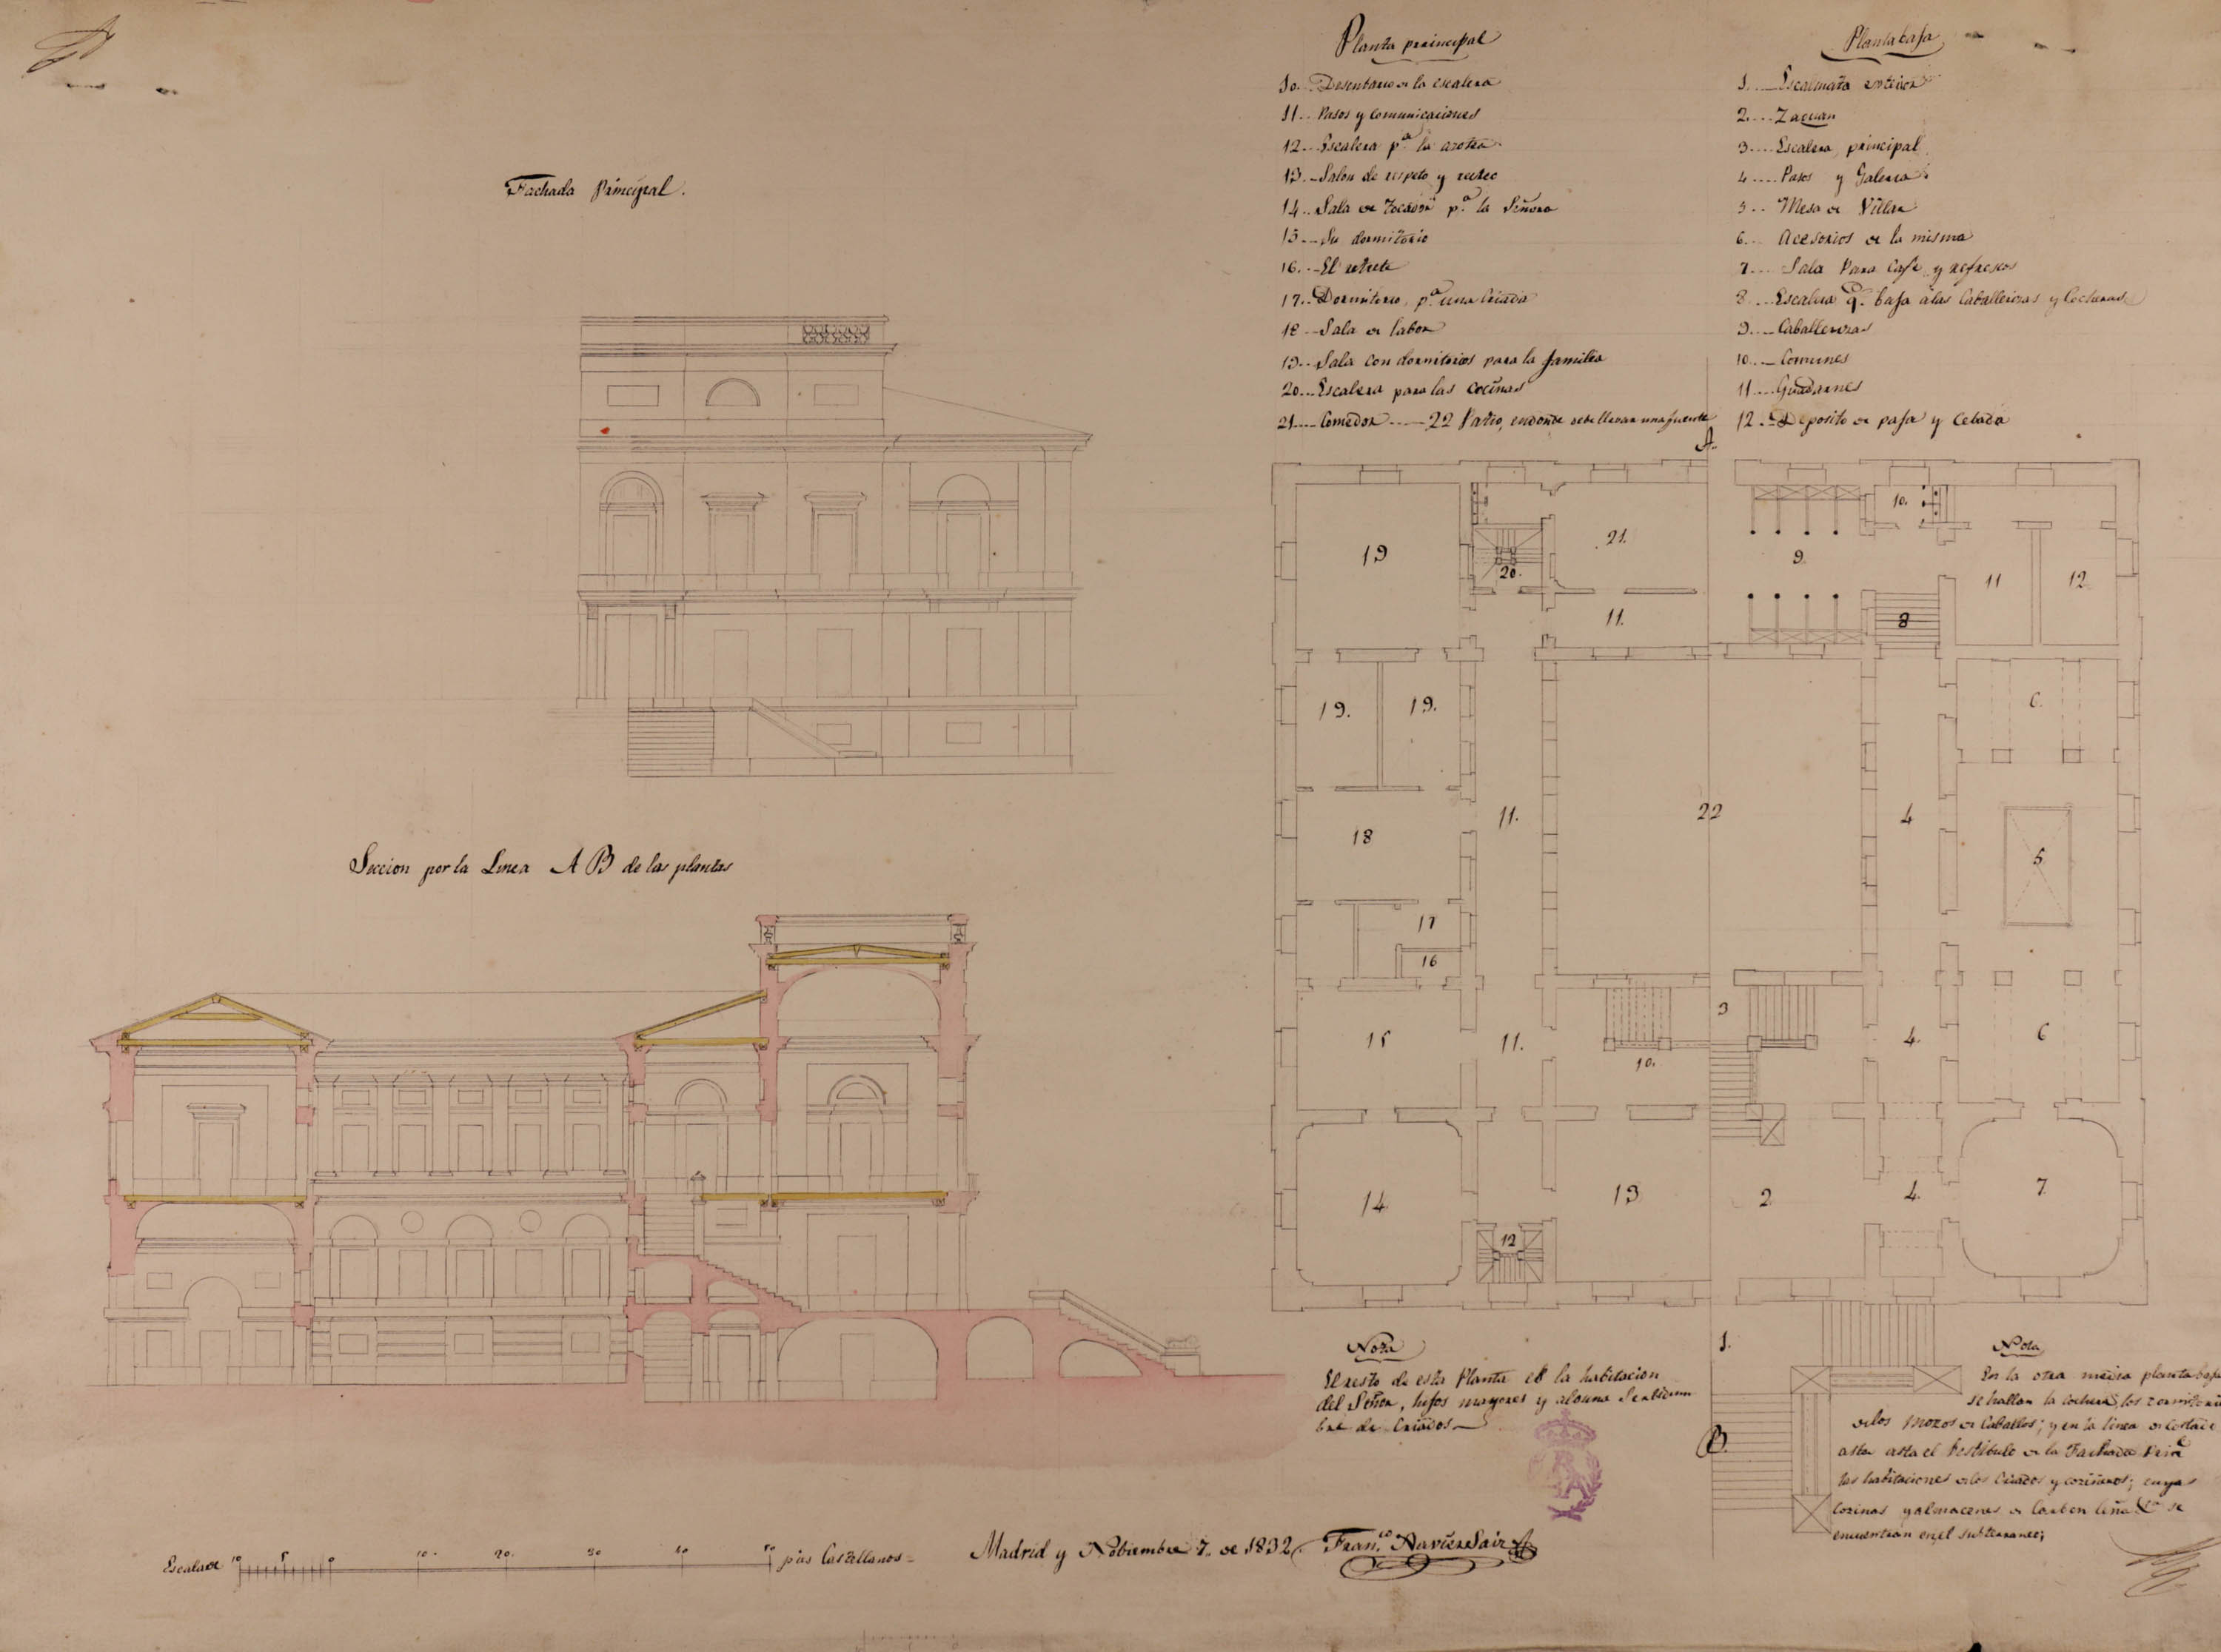 Fachada Principal.
Seccion por la Linea A B de las plantas
Planta principal
10. Desembarco de la escalera
11.. Pasos y comunicaciones
12.. Escalera p.ª la azotea.
13.. Salon de respeto y recreo
14.. Sala de tocador p.ª la Señora
15... Su dormitorio
16... El retrete
17.. Dormitorio p.ª una Criada
18... Sala de labor
19.. Sala con dormitorios para la familia
20... Escalera para las cocinas
21.... Comedor ..... 22 Patio, en donde debe llevar una fuente
Planta baja
1. ... Escalinata exterior
2. ... Zaguan
3 .... Escalera principal
4 .... Pasos y Galeria
5 ... Mesa de Villar
6. ... Acesorios de la misma
7 .... Sala para Cafe y refrescos
8. ... Escalera q.e baja á las Caballerizas y Cocheras
9. ... Caballerizas
10. ... Comunes
11. ... Guadarnes
12 ... Deposito de paja y Cebada
A.
19
20.
21.
11.
10.
9
8
11
12
19.
19.
6.
18
11.
22
4
5
17
16
15
11.
10.
3
4.
6
14
12
13
2
4.
7.
1.
B.
Nota
El resto de esta Planta es la habitacion
del Señor, hijos mayores y alguna Servidum
bre de Criados
Nota
En la otra media planta baja
se hallan la cochera, los dormitorios
de los Mozos de Caballos; y en la linea de costado
asta el Vestibulo de la Fachada Prin.l
las habitaciones de los Criados y cozineros; cuyas
Cozinas y almacenes de Carbon leña &.ª se
encuentran en el subterraneo;
Escala de 10 5 0 10. 20. 30 40 50 pies Castellanos
Madrid y Nobiembre 7. de 1832. Fran.co Xavier Saiz